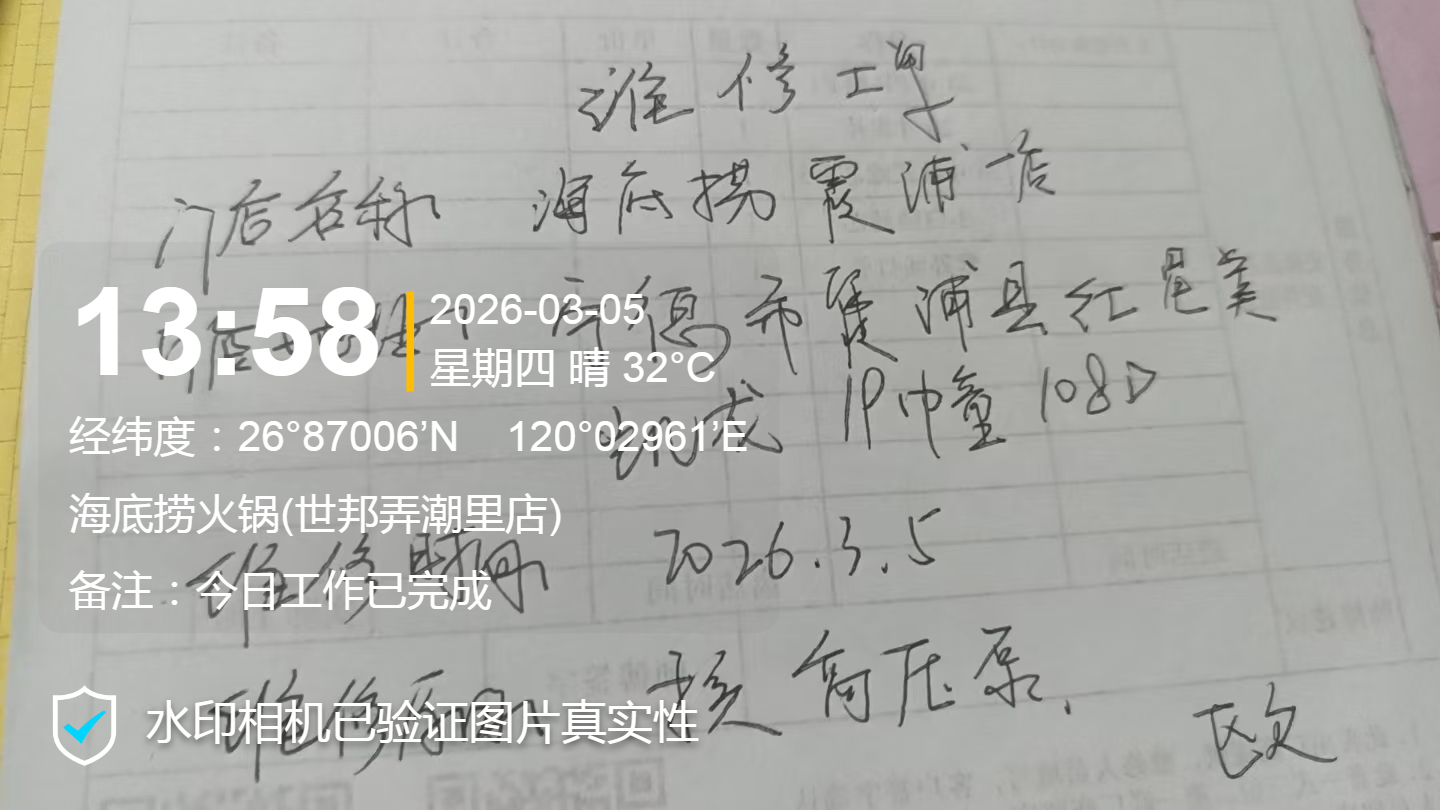 维修工单
门店名称 海底捞霞浦店
门店地址 宁德市霞浦县红尾美
2026.3.5
换高压泵.
欧
13:58
2026-03-05
星期四 晴 32°C
经纬度：26°87006’N 120°02961’E
海底捞火锅(世邦弄潮里店)
备注：今日工作已完成
水印相机已验证图片真实性